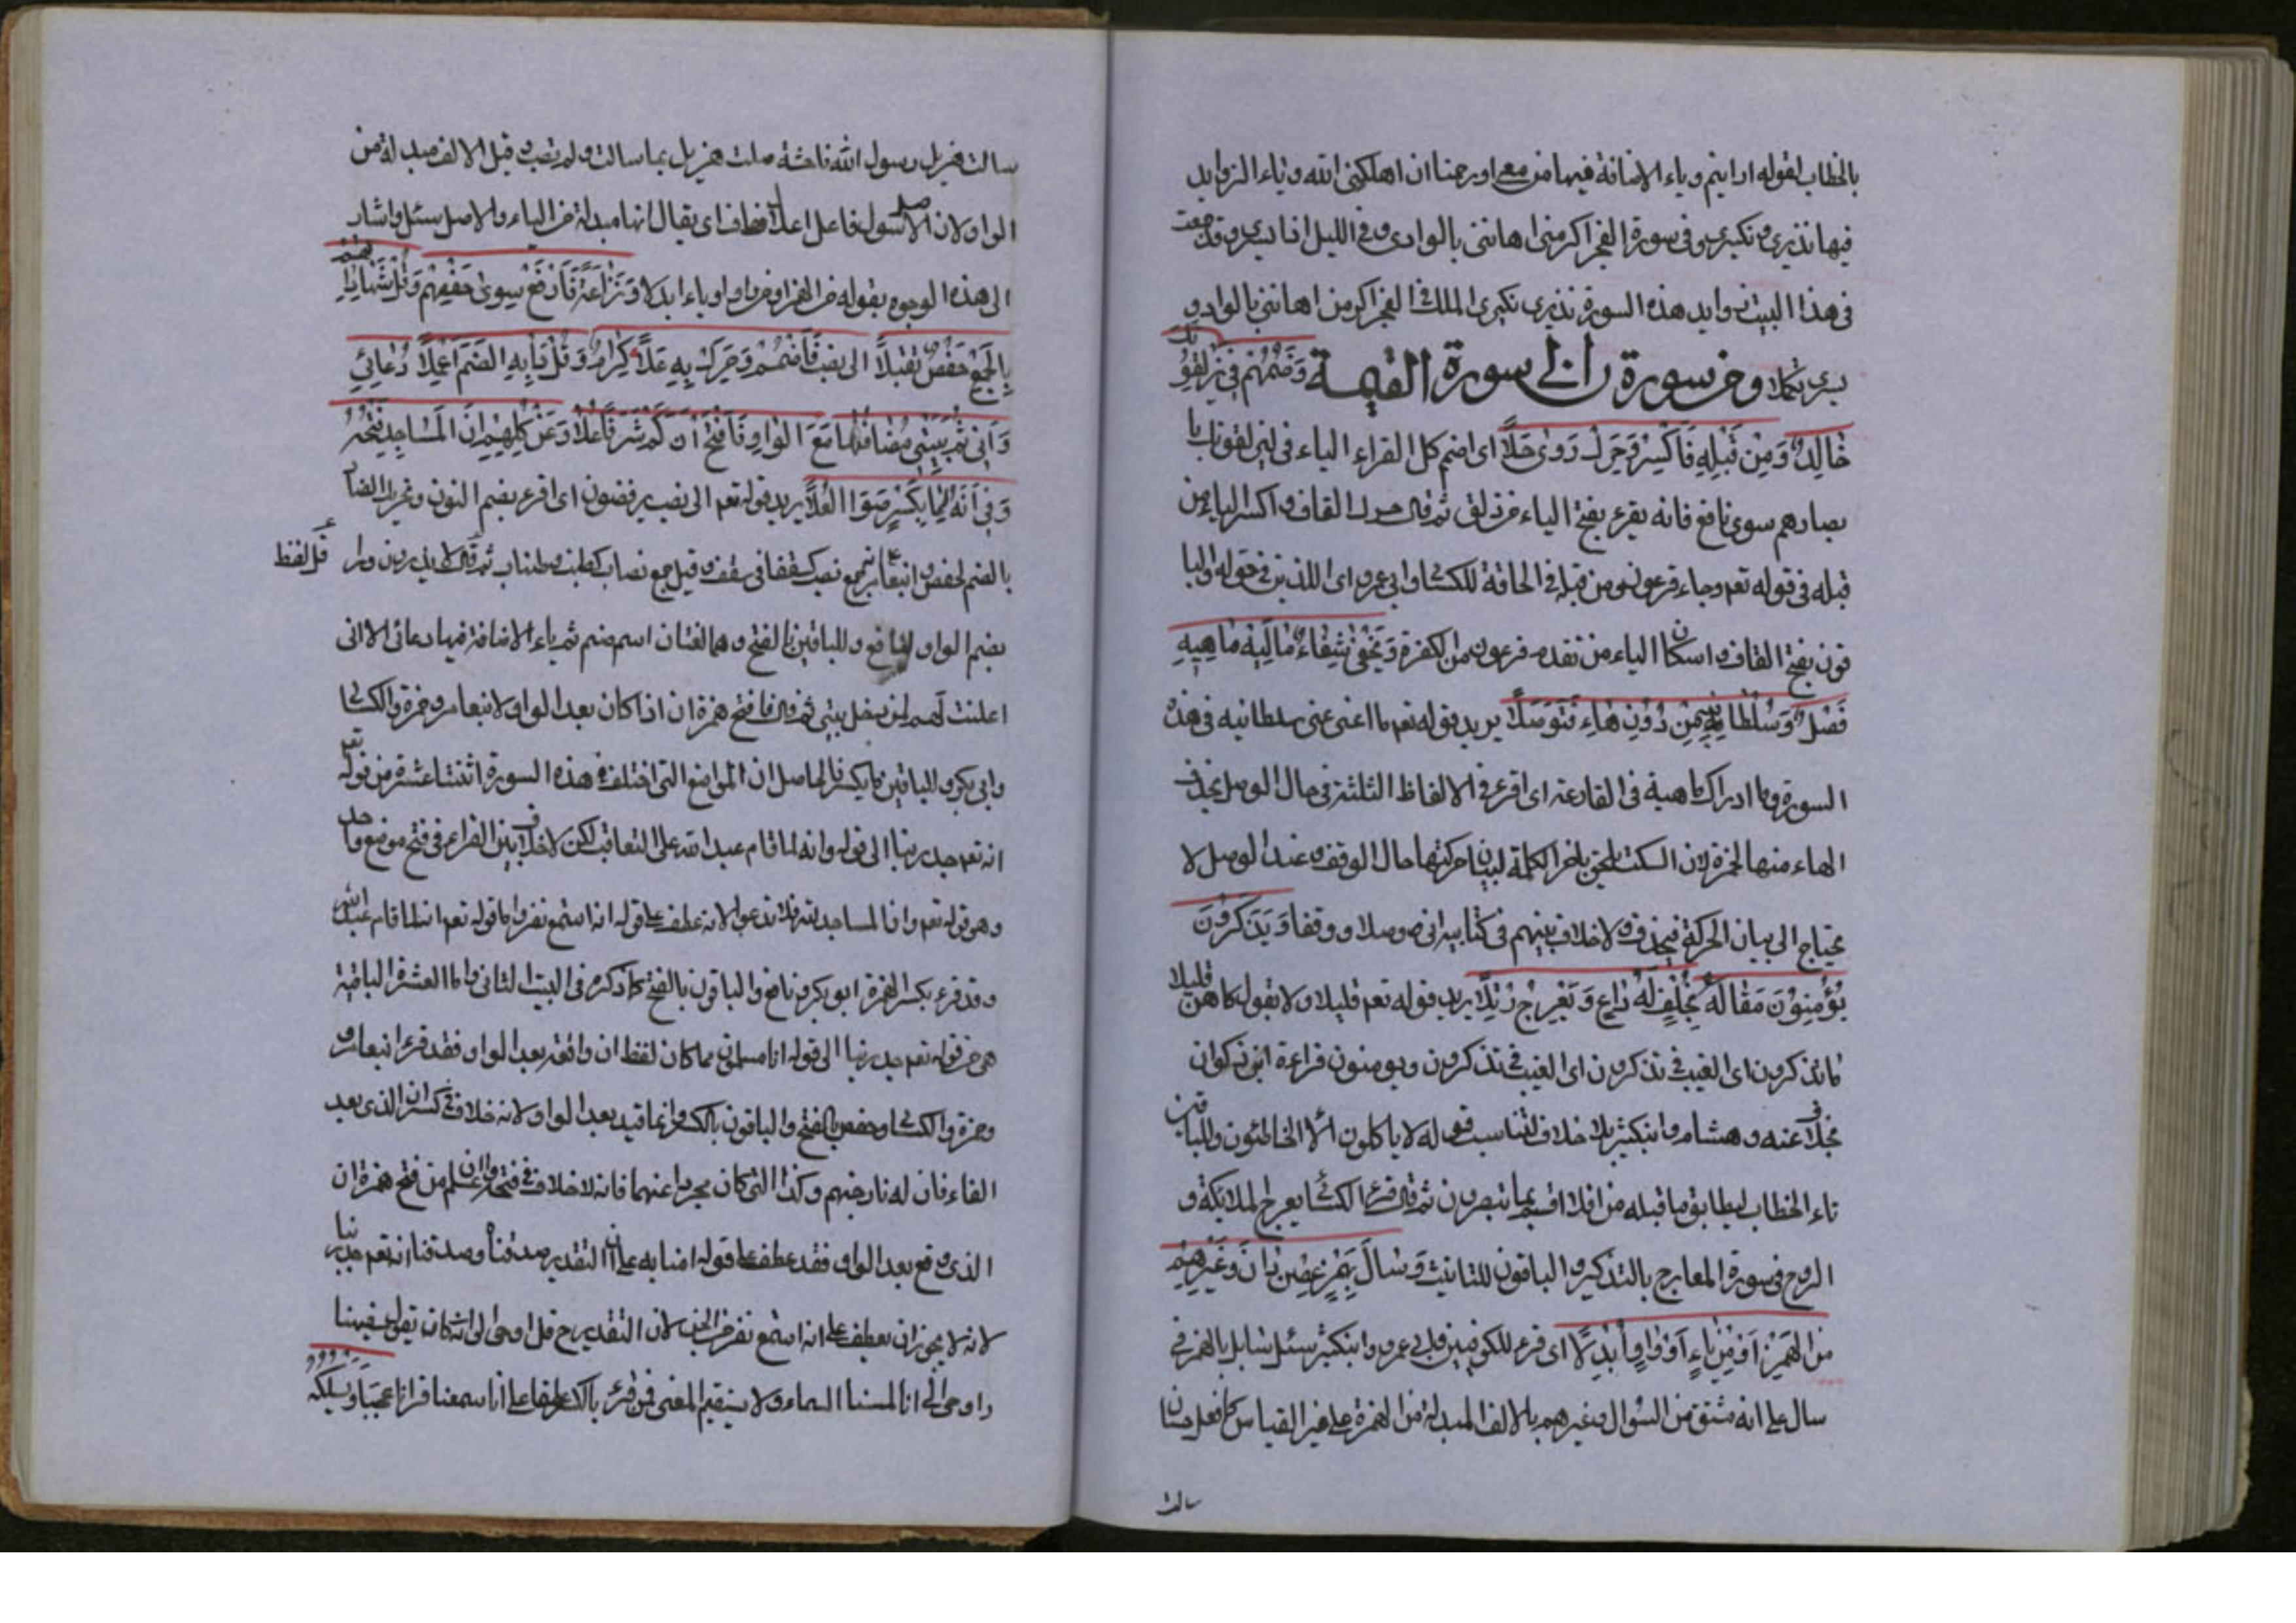 بالخطاب لقوله ارايتم وياء الاضافة فيها من معي اورحمنا ان اهلكني الله وياء الزوايد
فيها نذيري ونكيري وفي سورة الفجر اكرمني اهانني بالوادي وفي الليل اذا يسري وقد جمعت
في هذا البيت زوايد هذه السورة نذيري نكيري الملك في الفجر اكرمن اهانني بالوادي
يسري تكملا ومن سورة ن الى سورة القيمة وَضَمُّهُم في يزلقونك
خَالِدٌ وَمِن قَبْلِهِ فَاكْسِرْ وَحَرِّكْ رَوىً حَلَا اى اضم كل القراء الياء في ليزلقونك با
بصارهم سوى نافع فانه يقرء بفتح الياء من زلق ثم قال حرك القاف واكسر الباء من
قبله في قوله تعم وجاء فرعون ومن قبله في الحاقة للكسائي وابي عمرو اى اللذين في حقوله والبا
قون بفتح القاف واسكان الياء من تقدم فرعون من الكفرة وَيَخْفىٰ شِفَاءً مَالِيَهْ مَاهِيَهْ
فَصِلْ وَسُلْطَانِيَهْ مِنْ دُونِ هَاءٍ فَتُوصَلَا يريد قوله تعم ما اغنى عني سلطانيه في هذه
السورة وما ادراك ماهية في القارعة اى اقرء في الالفاظ الثلثة في حال الوصل بحذف
الهاء منها لحمزة لان السكت يلحق باخر الكلمة لبيان حركتها حال الوقف وعند الوصل لا
يحتاج الى بيان الحركة فيحذف ولا خلاف بينهم في كتابيه اني وصلا ووقفا وَيَذَّكَّرُونَ
يُؤْمِنُونَ مَقَالُهُ بِخُلْفٍ لَهُ دَاعٍ وَيَعْرُجُ رُتِّلَا يريد قوله تعم قليلا ولا بقول كاهن قليلا
ما تذكرون اى الغيب في تذكرون اى الغيب في تذكرون ويومنون قراءة ابن ذكوان
بخلاف عنه وهشام وابنكثير بلا خلاف لتناسب قوله لا ياكلون الا الخاطئون وللباقين
تاء الخطاب ليطابق ما قبله من افلا اقسم بما تبصرون ثم قال قرء الكسائي يعرج الملايكة و
الروح في سورة المعارج بالتذكير والباقون للتانيث وَسَالَ بِهَمْزٍ غُصْنُ دَانٍ وَغَيْرُهُمْ
مِنَ الْهَمْزِ اَوْ مِنْ يَاءٍ اَوْ وَاوٍ اَبْدَلَا اى قرء للكوفيين وابي عمرو وابنكثير سئل سايل بالهمز في
سال على انه مشتق من السؤال وغيرهم بالالف المبدلة من الهمزة على غير القياس كما فعل حسان
سالت
سالت هزيل رسول الله فاحشة ضلت هزيل بما سالت ولم تصب وقيل الالف مبدلة من
الواو لان الاصل سول فاعل اعلال خاف اى يقال انها مبدلة من الياء والاصل سئل واشار
الى هذه الوجوه بقوله من الهمز او من واو او ياء ابدلا وَنَزَّاعَةً فَارْفَعْ سِوىٰ حَفْصِهِمْ وَقُلْ شَهَادَاتِهِمْ
بِالْجَمْعِ حَفْصٌ تَقَبَّلَا الى نصب فَاضْمُمْ وَحَرِّكْ بِهِ عَلَا كِرَامٍ وَقُلْ وَدًّا بِهِ الضَّمُّ اُعْمِلَا دُعَائِي
وَاِنِّي ثُمَّ بَيْتِي مُضَافُهَا مَعَ الْوَاوِ فَافْتَحْ اَنَّ كَمْ شَرَفًا عَلَا وَعَنْ كُلِّهِمْ اَنَّ الْمَسَاجِدَ فَتْحُهُ
وَفِي اَنَّهُ لَمَّا بِكَسْرٍ صَوَا الْعُلَا يريد قوله تعم الى نصب يوفضون اى اقرء بضم النون وتحريك الصاد
بالضم لحفص وابنعامر جمع نصب كسقف في سقف وقيل جمع نصاب ككتب وكتاب ثم قال لا يذرون ودا قرء لفظ
بضم الواو لنافع وللباقين بالفتح وهما لغتان اسم صنم ثم ياء الاضافة فيها دعائي الا اني
اعلنت لهم لمن دخل بيتي ثم قال فافتح همزة ان اذا كان بعد الواو لابنعامر وحمزة والكسائي
وابي بكر وللباقين بالكسر فالحاصل ان المواضع التي اختلف في هذه السورة اثنتا عشرة من قوله تعم
انه تعم جد ربنا الى قوله وانه لما قام عبد الله على التعاقب لكن لا خلاف بين القراء في فتح موضع واحد
وهو قوله تعم وان المساجد لله فلا تدعوا لانه عطف على قوله انه استمع نفر واما قوله تعم انه لما قام عبد الله
وقد قرء بكسر الهمزة ابو بكر ونافع والباقون بالفتح كما ذكره في البيت الثاني واما العشرة الباقية
هي من قوله تعم جد ربنا الى قوله انا مسلمون مما كان لفظ ان واقعة بعد الواو فقد قرء ابنعامر و
وحمزة والكسائي وحفص بالفتح والباقون بالكسر وانما قيد بعد الواو لانه خلاف في كسر ان الذي بعد
الفاء فان له نار جهنم وكذا التي كان مجردا عنهما فانه لا خلاف في فتحها واعلم من فتح همزة ان
الذي وقع بعد الواو فقد عطف على قوله امنا به على ان التقدير صدقنا وصدقنا انه تعم جد ربنا
لانه لا يجوز ان يعطف على انه استمع نفر من الجن لان التقدير ح قل اوحى الى انه كان يقول سفيهنا
واوحى الى انا لمسنا السماء ولا يستقيم المعنى فمن قرء بالكسر عطفا على انا سمعنا قرانا عجبا وَيَسْلُكْهُ